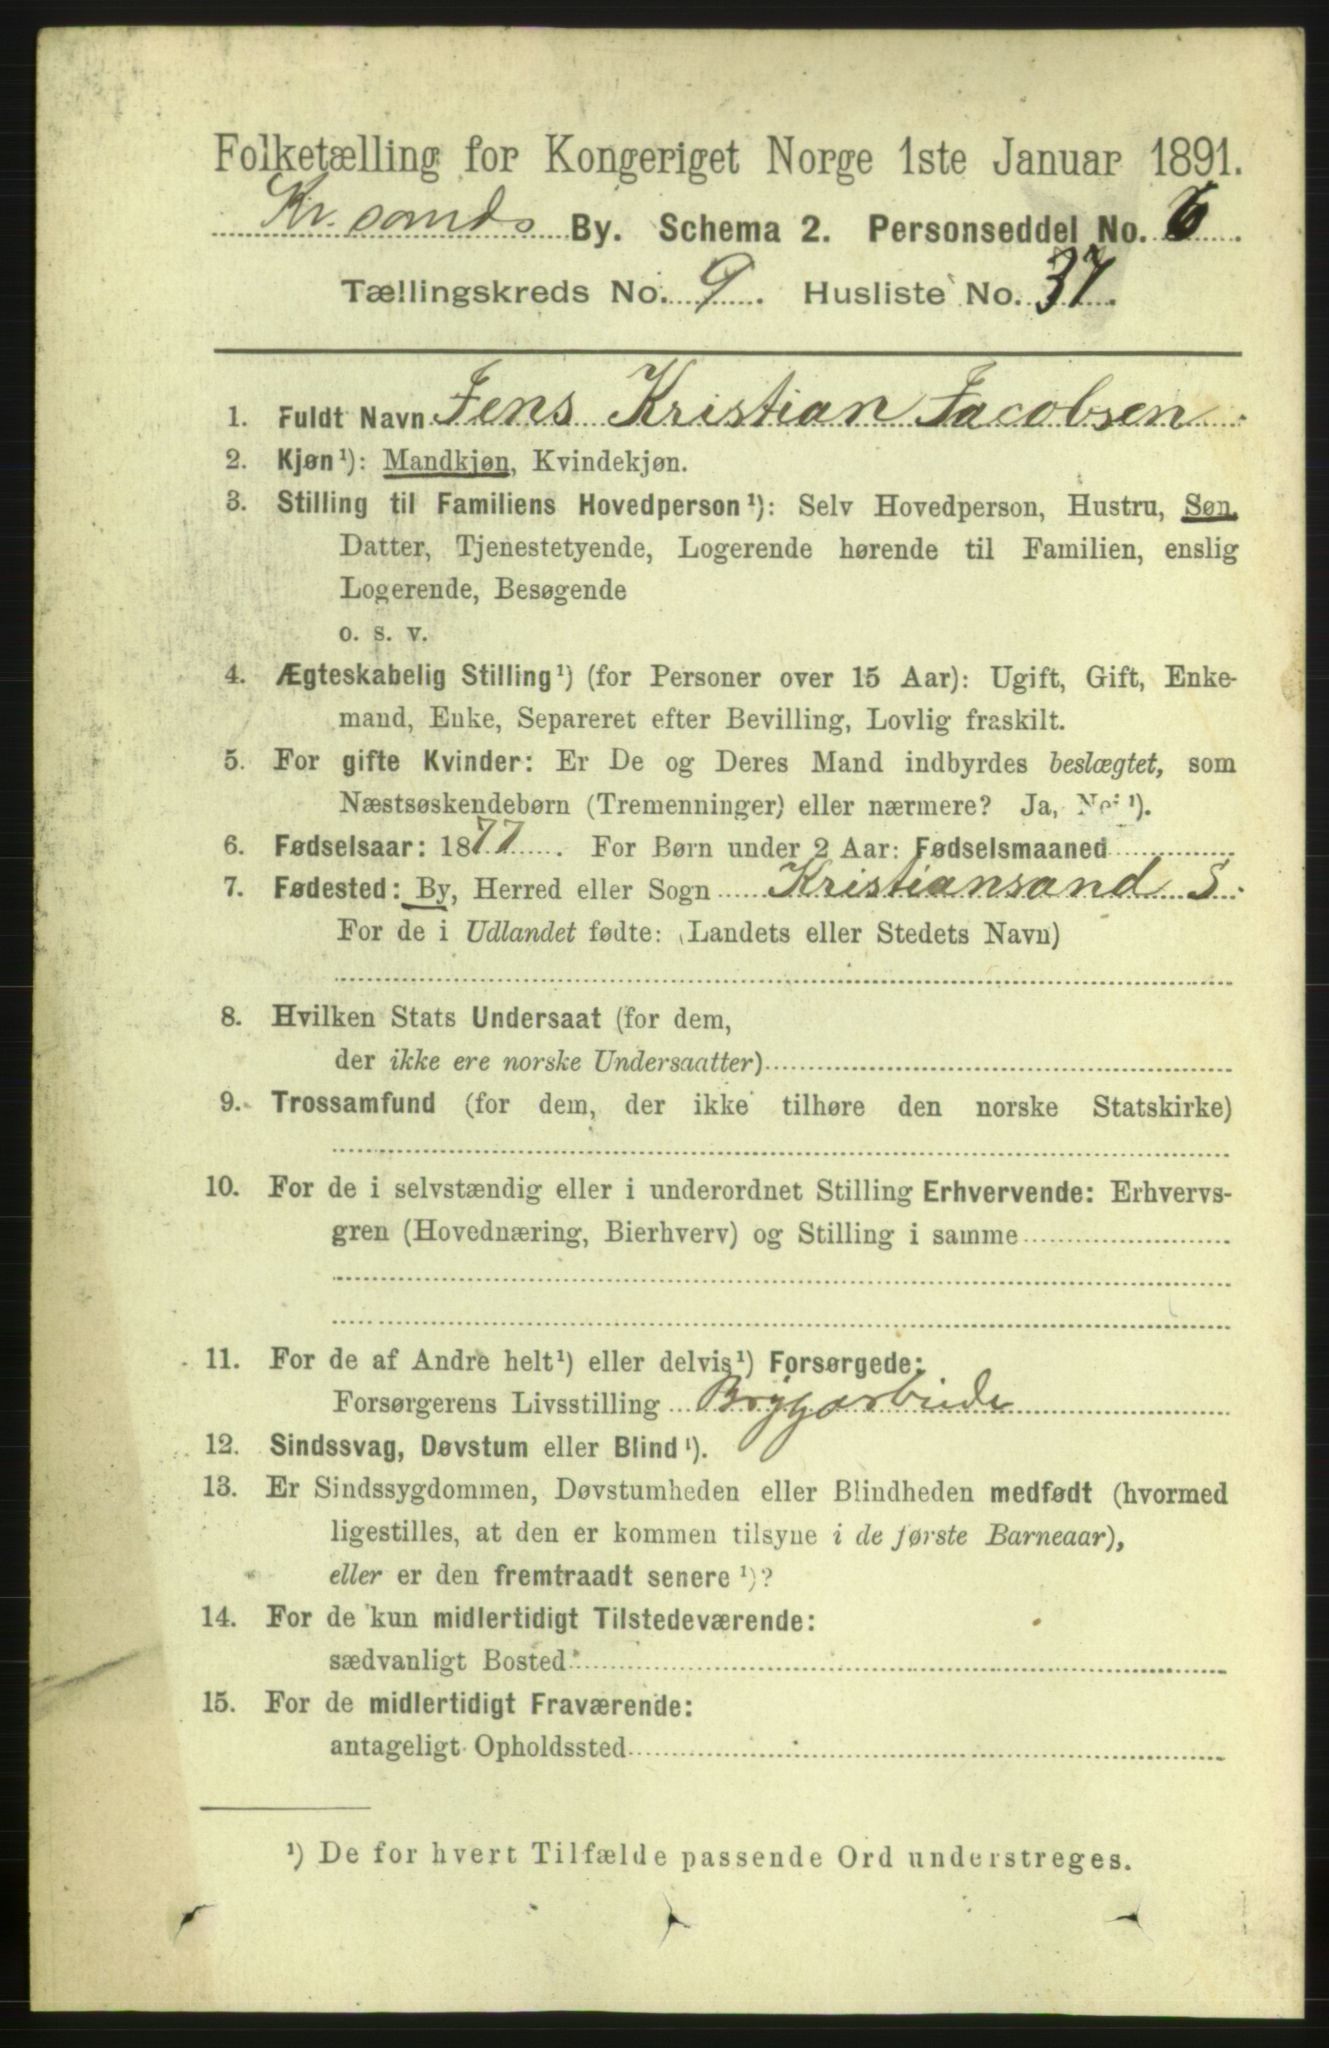 Folketælling for Kongeriget Norge 1ste Januar 1891.
Kr.sands By. Schema 2. Personseddel No. 6.
Tællingskreds No. 9. Husliste No. 37.
1. Fuldt Navn Jens Kristian Jacobsen.
2. Kjøn¹): Mandkjøn, Kvindekjøn.
3. Stilling til Familiens Hovedperson¹): Selv Hovedperson, Hustru, Søn,
Datter, Tjenestetyende, Logerende hørende til Familien, enslig
Logerende, Besøgende
o. s. v.
4. Ægteskabelig Stilling¹) (for Personer over 15 Aar): Ugift, Gift, Enke-
mand, Enke, Separeret efter Bevilling, Lovlig fraskilt.
5. For gifte Kvinder: Er De og Deres Mand indbyrdes beslægtet, som
Næstsøskendebørn (Tremenninger) eller nærmere? Ja, Nei¹).
6. Fødselsaar: 1877. For Børn under 2 Aar: Fødselsmaaned
7. Fødested: By, Herred eller Sogn Kristiansand S.
For de i Udlandet fødte: (Landets eller Stedets Navn)
8. Hvilken Stats Undersaat (for dem,
der ikke ere norske Undersaatter)
9. Trossamfund (for dem, der ikke tilhøre den norske Statskirke)
10. For de i selvstændig eller i underordnet Stilling Erhvervende: Erhvervs-
gren (Hovednæring, Bierhverv) og Stilling i samme
11. For de af Andre helt¹) eller delvis¹) Forsørgede:
Forsørgerens Livsstilling
12. Sindssvag, Døvstum eller Blind¹).
13. Er Sindssygdommen, Døvstumheden eller Blindheden medfødt (hvormed
ligestilles, at den er kommen tilsyne i de første Barneaar),
eller er den fremtraadt senere¹)?
14. For de kun midlertidigt Tilstedeværende:
sædvanligt Bosted
15. For de midlertidigt Fraværende:
antageligt Opholdssted
¹) De for hvert Tilfælde passende Ord understreges.